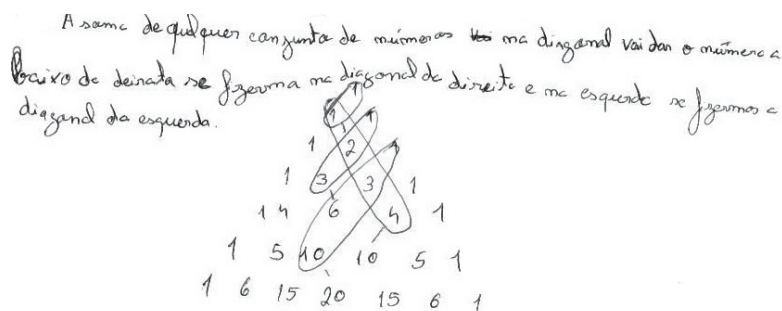 A soma de qualquer conjunto de números na diagonal vai dar o número a
baixo da direita se fizerma na diagonal da direita e na esquerda se fizermos a
diagonal da esquerda.
1 1
1 2 1
1 3 3 1
1 4 6 4 1
1 5 10 10 5 1
1 6 15 20 15 6 1